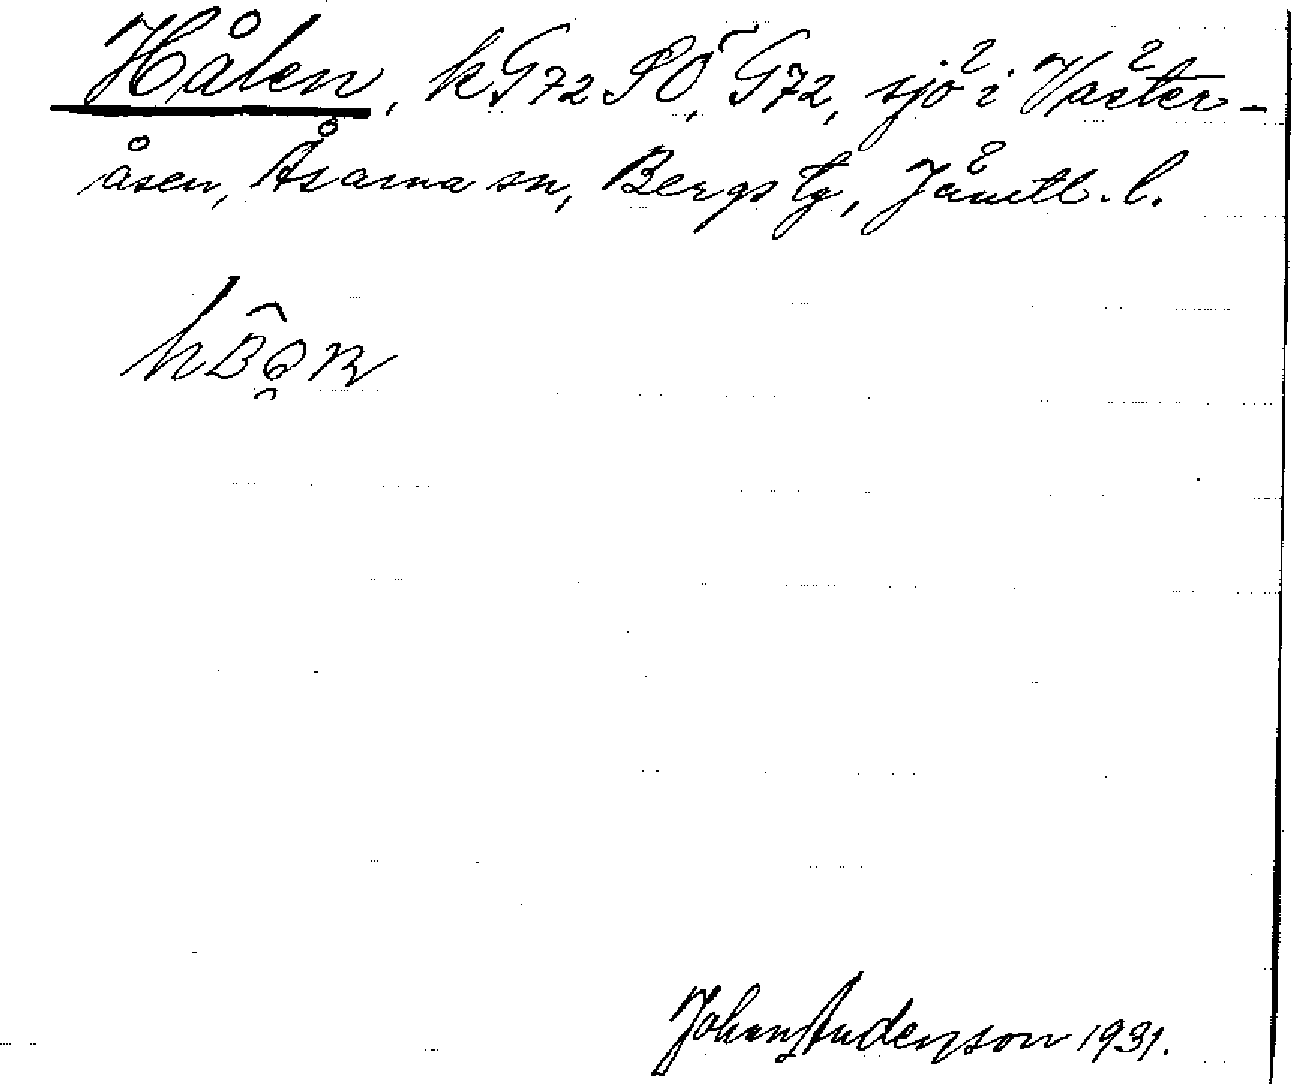 Hålen, k G72 SÖ, G72, sjö i Väster-
åsen, Åsarna sn, Bergs tg, Jämtl. l.
Johan Andersson 1931.